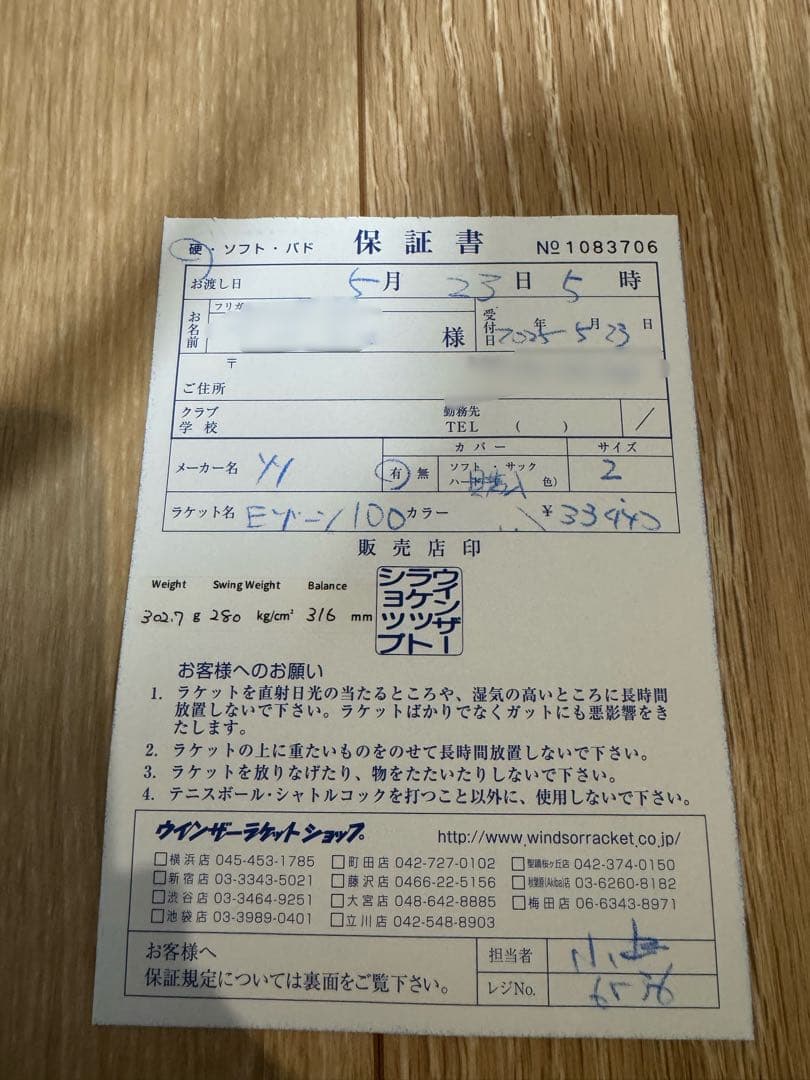 硬・ソフト・バド 保証書 № 1083706
お渡し日 5月 23日 5時
フリガ
お名前 様 受付日 2025年 5月 23日
〒
ご住所
クラブ 学校 勤務先 TEL ( ) /
カバー サイズ
メーカー名 YY 有 無 ソフト・サック ハード 色) 2
ラケット名 Eゾーン100 カラー ¥33440
販売店印
Weight Swing Weight Balance
302.7 g 280 kg/cm² 316 mm
ウインザーラケットショップ
お客様へのお願い
1. ラケットを直射日光の当たるところや、湿気の高いところに長時間
放置しないで下さい。ラケットばかりでなくガットにも悪影響をき
たします。
2. ラケットの上に重たいものをのせて長時間放置しないで下さい。
3. ラケットを放りなげたり、物をたたいたりしないで下さい。
4. テニスボール・シャトルコックを打つこと以外に、使用しないで下さい。
ウインザーラケットショップ。 http://www.windsorracket.co.jp/
□横浜店 045-453-1785 □町田店 042-727-0102 □聖蹟桜ヶ丘店 042-374-0150
□新宿店 03-3343-5021 □藤沢店 0466-22-5156 □秋葉原(Akiba)店 03-6260-8182
□渋谷店 03-3464-9251 □大宮店 048-642-8885 □梅田店 06-6343-8971
□池袋店 03-3989-0401 □立川店 042-548-8903
お客様へ 担当者
保証規定については裏面をご覧下さい。 レジNo.